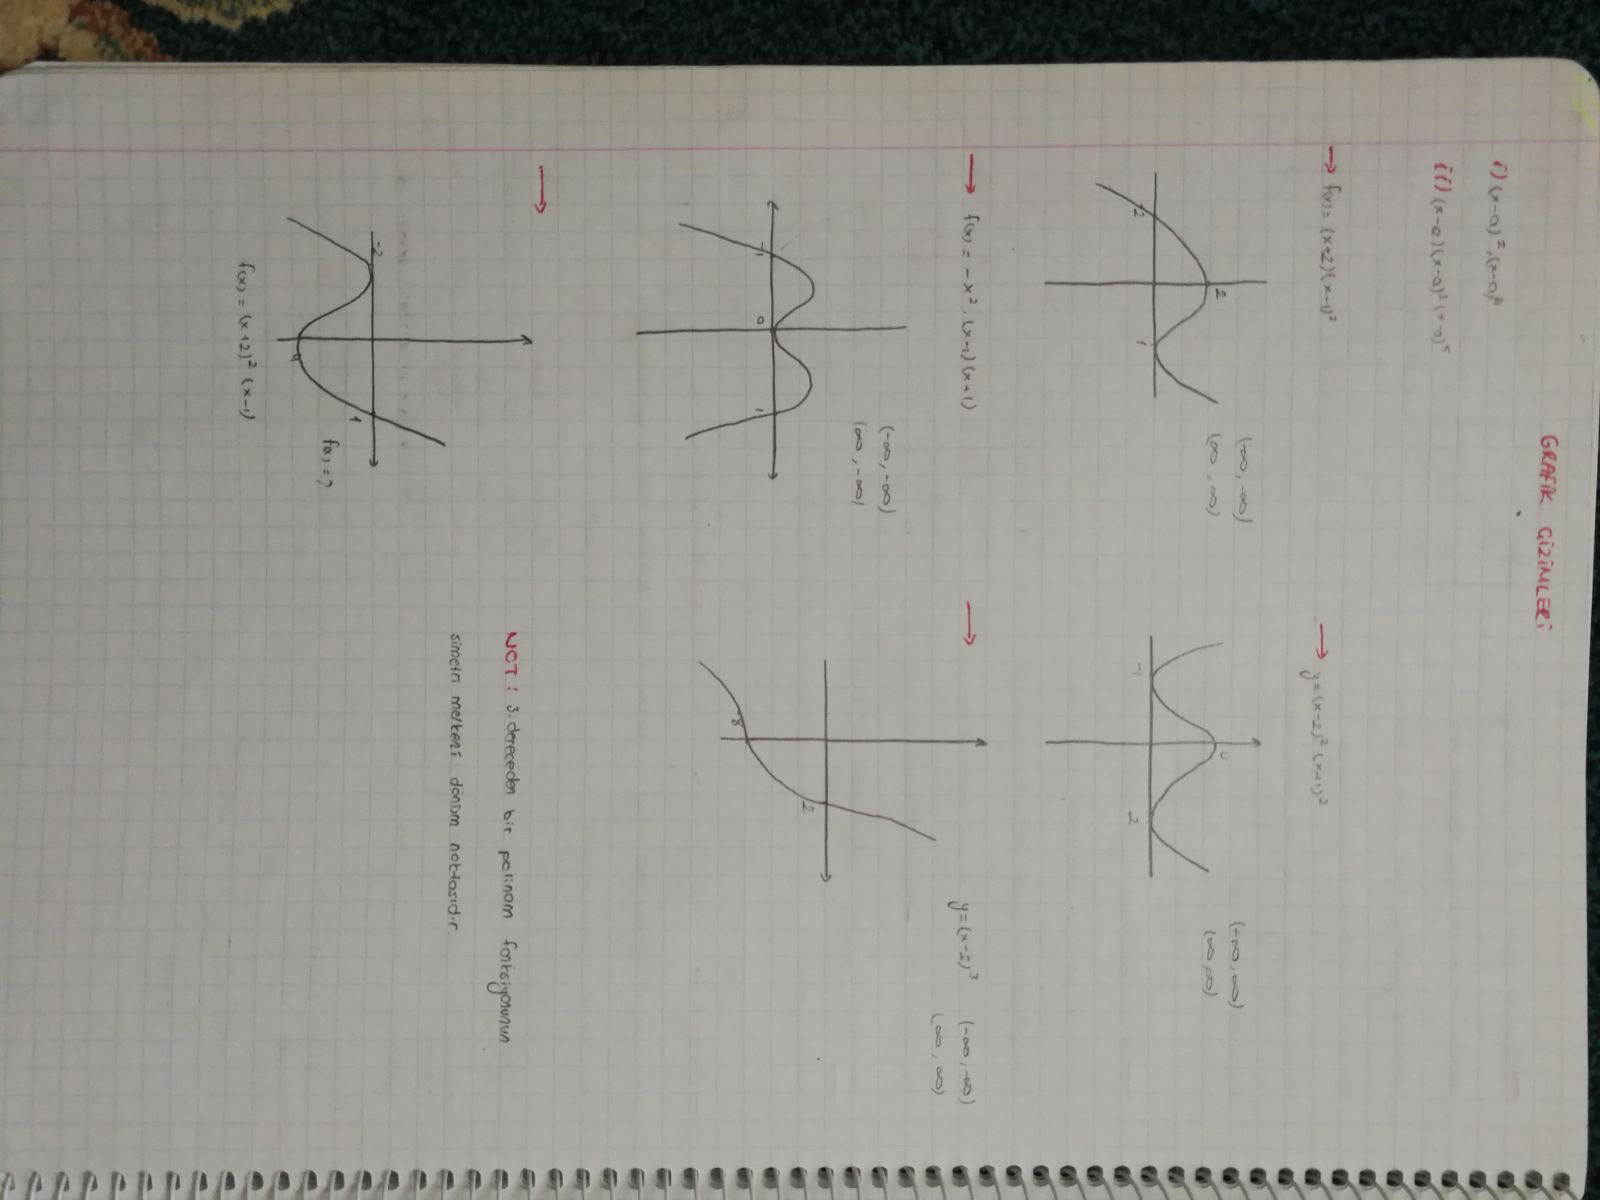 GRAFİK ÇİZİMLERİ
i) (x-a)²,(x-a)⁴
ii) (x-a)(x-a)³(x-a)⁵
→ f(x)= (x+2)(x-1)²
(-∞, -∞)
(∞, ∞)
2
-2
1
→ y=(x-2)² (x+1)²
(-∞, ∞)
(∞, ∞)
4
-1
2
→ f(x) = -x².(x-1)(x+1)
(-∞, -∞)
(∞, -∞)
-1
0
1
→ y=(x-2)³ (-∞, -∞)
(∞, ∞)
2
-8
→
-2
1
f(x)=?
-4
f(x) = (x+2)² (x-1)
NOT: 3. dereceden bir polinom fonksiyonunun
simetri merkezi dönüm noktasıdır.